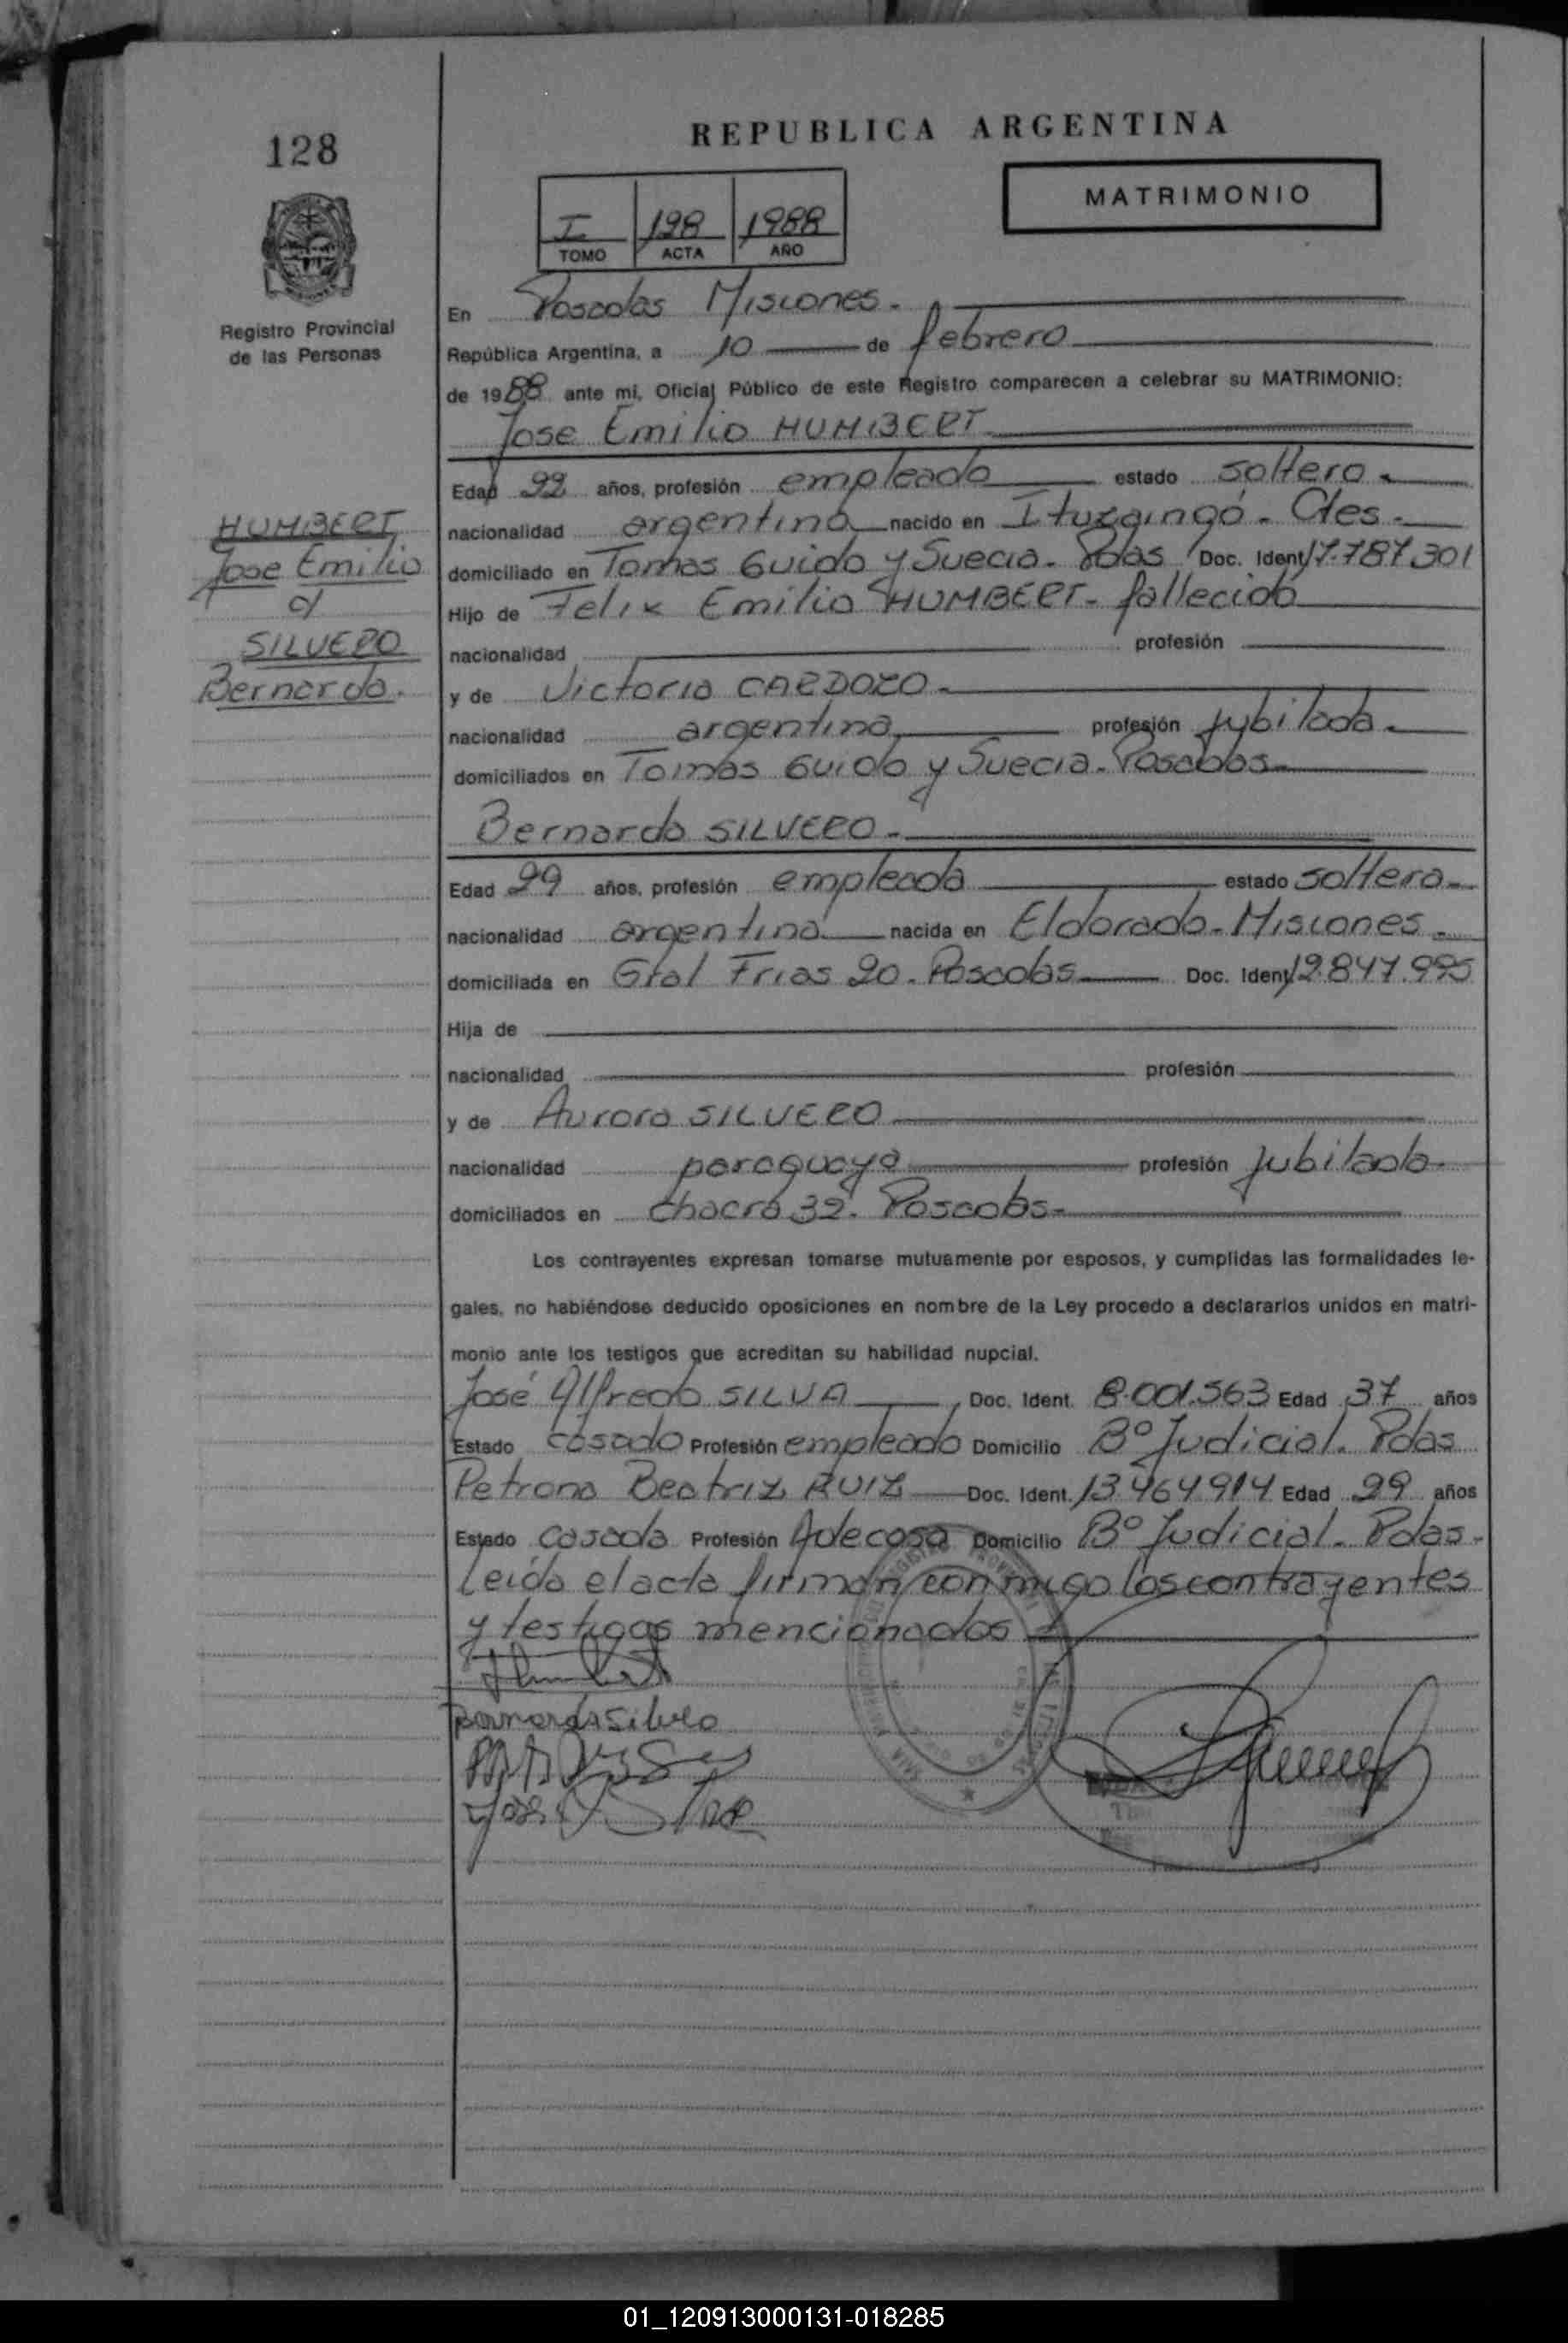 128
REPUBLICA ARGENTINA
MATRIMONIO
I 128 1988
TOMO ACTA AÑO
Registro Provincial
de las Personas
En Posadas Misiones.
República Argentina, a 10 de febrero
de 1988 ante mi, Oficial Público de este Registro comparecen a celebrar su MATRIMONIO:
Jose Emilio HUMBERT
Edad 22 años, profesión empleado estado soltero.
HUMBERT
Jose Emilio
c/
SILVERO
Bernarda.
nacionalidad argentina nacido en Ituzaingó. Ctes.
domiciliado en Tomas Guido y Suecia. Pdas Doc. Ident 17.787.301
Hijo de Felix Emilio HUMBERT. fallecido
nacionalidad profesión
y de Victoria CARDOZO.
nacionalidad argentina profesión jubilada.
domiciliados en Tomas Guido y Suecia. Posadas
Bernarda SILVERO.
Edad 29 años, profesión empleada estado soltera.
nacionalidad argentina nacida en Eldorado. Misiones.
domiciliada en Gral Frias 20. Posadas Doc. Ident 12.847.995
Hija de
nacionalidad profesión
y de Aurora SILVERO
nacionalidad paraguaya profesión jubilada.
domiciliados en chacra 32. Posadas.
Los contrayentes expresan tomarse mutuamente por esposos, y cumplidas las formalidades le-
gales, no habiéndose deducido oposiciones en nombre de la Ley procedo a declararlos unidos en matri-
monio ante los testigos que acreditan su habilidad nupcial.
José Alfredo SILVA Doc. Ident. 8.001.563 Edad 37 años
Estado casado Profesión empleado Domicilio Bº Judicial. Pdas
Petrona Beatriz RUIZ Doc. Ident. 13.464.914 Edad 29 años
Estado casada Profesión Adecasa Domicilio Bº Judicial. Pdas.
Leída el acta firman conmigo los contrayentes
y testigos mencionados
Bernarda Silvero
01_120913000131-018285